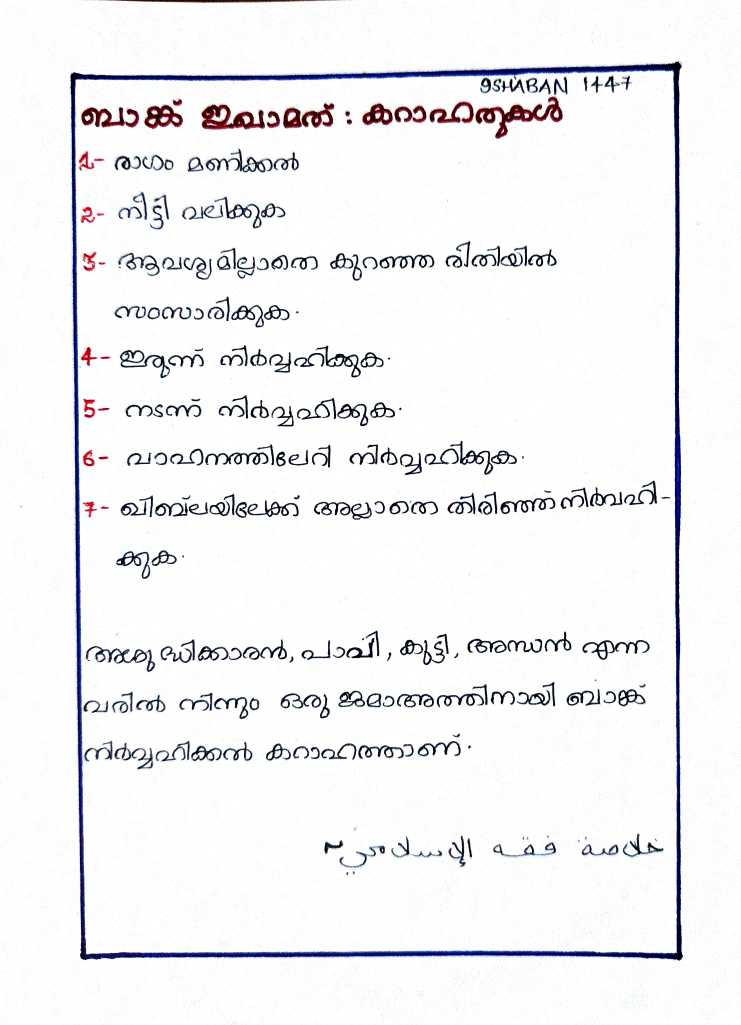 9SHABAN 1447
ബാങ്ക് ഇഖാമത്ത് : കറാഹത്തുകൾ
1- രാഗം മണിക്കൽ
2- നീട്ടി വലിക്കുക
3- ആവശ്യമില്ലാതെ കുറഞ്ഞ രീതിയിൽ
സംസാരിക്കുക.
4- ഇരുന്ന് നിർവ്വഹിക്കുക.
5- നടന്ന് നിർവ്വഹിക്കുക.
6- വാഹനത്തിലേറി നിർവ്വഹിക്കുക.
7- ഖിബ്ലയിലേക്ക് അല്ലാതെ തിരിഞ്ഞ് നിർവഹി-
ക്കുക.
അശുദ്ധിക്കാരൻ, പാപി, കുട്ടി, അന്ധൻ എന്ന
വരിൽ നിന്നും ഒരു ജമാഅത്തിനായി ബാങ്ക്
നിർവ്വഹിക്കൽ കറാഹത്താണ്.
خلاصة فقه الإسلامي~